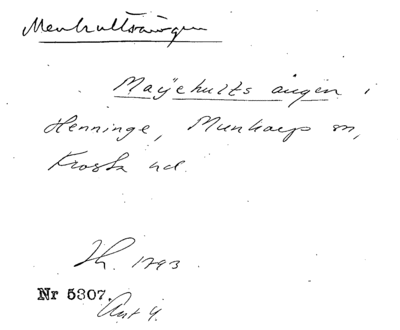 Menhultsängen
Maÿehults ängen i
Henninge, Munkarps sn,
Frosta hd.
Sk. 1793.
Nr 5307.
Ant 4.